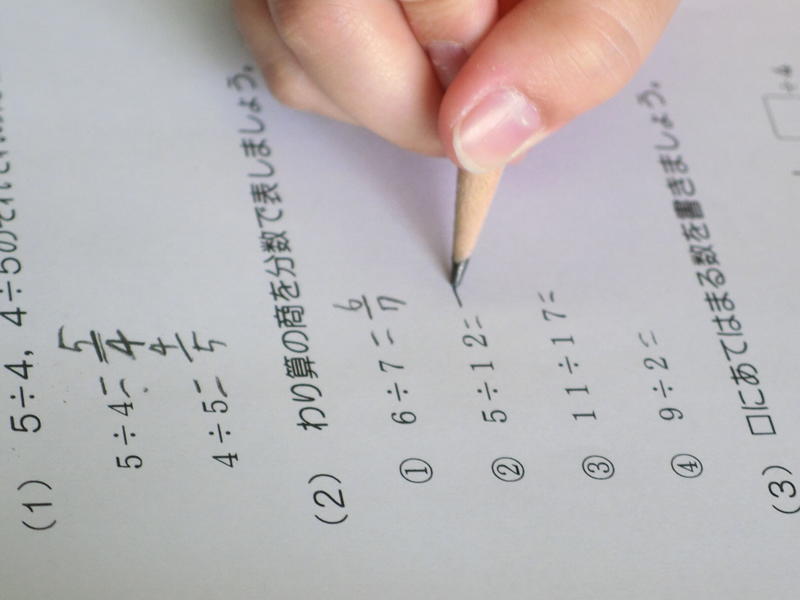 (1) 5÷4, 4÷5の
5÷4=5/4
4÷5=4/5
(2) わり算の商を分数で表しましょう。
① 6÷7=6/7
② 5÷12=
③ 11÷17=
④ 9÷2=
(3) □にあてはまる数を書きましょう。